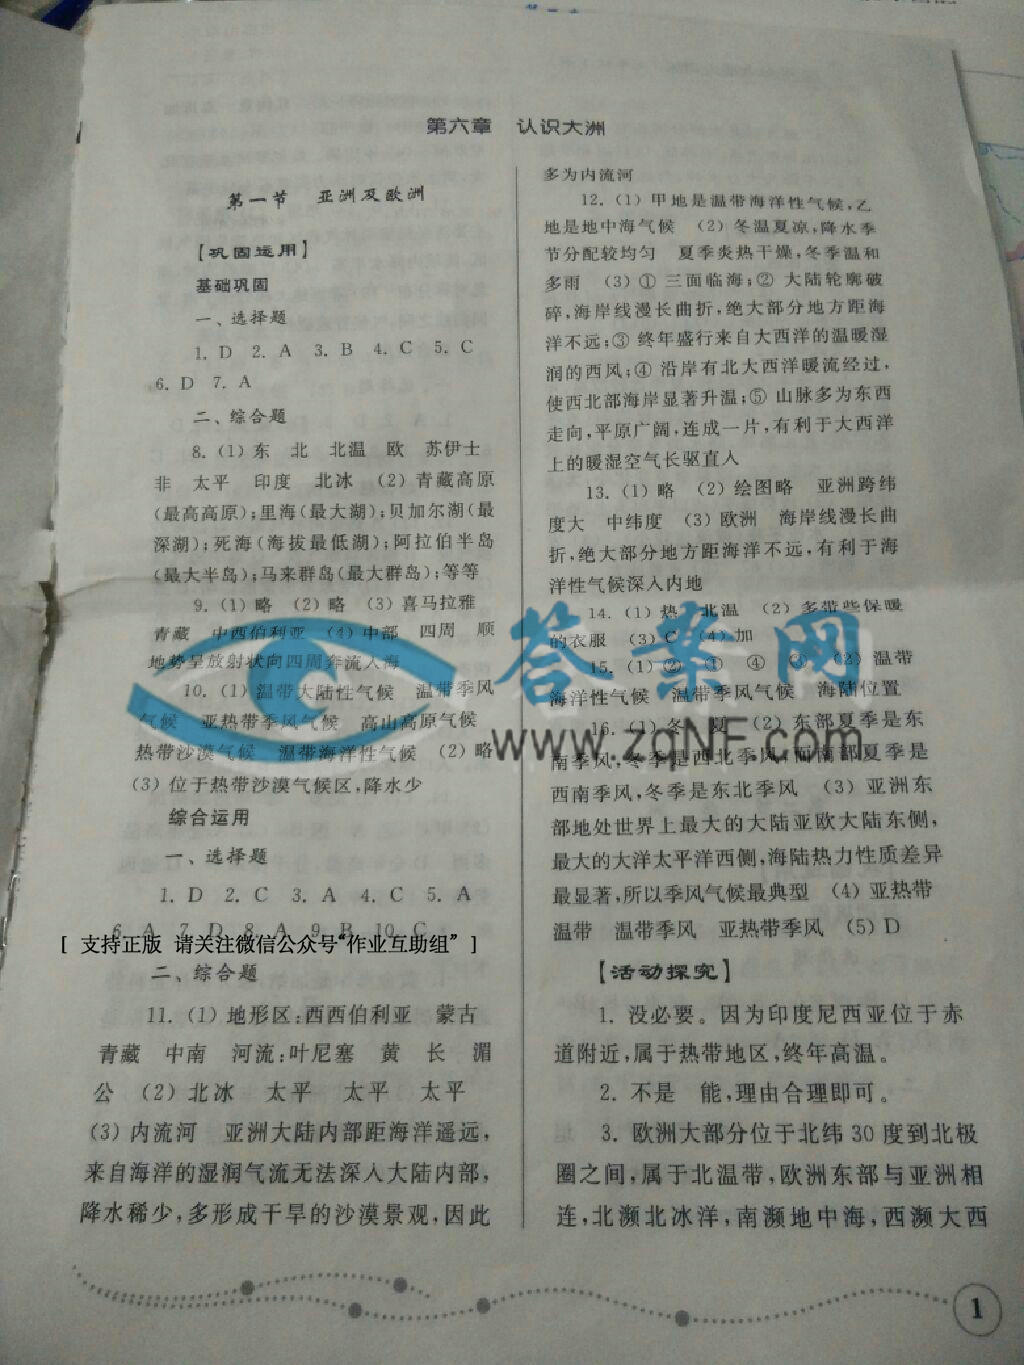 第六章 认识大洲
第一节 亚洲及欧洲
【巩固运用】
基础巩固
一、选择题
1. D 2. A 3. B 4. C 5. C
6. D 7. A
二、综合题
8. (1) 东 北 北温 欧 苏伊士
非 太平 印度 北冰 (2) 青藏高原
(最高高原);里海(最大湖);贝加尔湖(最
深湖);死海(海拔最低湖);阿拉伯半岛
(最大半岛);马来群岛(最大群岛);等等
9. (1) 略 (2) 略 (3) 喜马拉雅
青藏 中西伯利亚 (4) 中部 四周 顺
地势呈放射状向四周奔流入海
10. (1) 温带大陆性气候 温带季风
气候 亚热带季风气候 高山高原气候
热带沙漠气候 温带海洋性气候 (2) 略
(3) 位于热带沙漠气候区,降水少
综合运用
一、选择题
1. D 2. C 3. A 4. C 5. A
6. A 7. D 8. A 9. B 10. C
[ 支持正版 请关注微信公众号“作业互助组” ]
二、综合题
11. (1) 地形区:西西伯利亚 蒙古
青藏 中南 河流:叶尼塞 黄 长 湄
公 (2) 北冰 太平 太平 太平
(3) 内流河 亚洲大陆内部距海洋遥远,
来自海洋的湿润气流无法深入大陆内部,
降水稀少,多形成干旱的沙漠景观,因此
多为内流河
12. (1) 甲地是温带海洋性气候,乙
地是地中海气候 (2) 冬温夏凉,降水季
节分配较均匀 夏季炎热干燥,冬季温和
多雨 (3) ① 三面临海;② 大陆轮廓破
碎,海岸线漫长曲折,绝大部分地方距海
洋不远;③ 终年盛行来自大西洋的温暖湿
润的西风;④ 沿岸有北大西洋暖流经过,
使西北部海岸显著升温;⑤ 山脉多为东西
走向,平原广阔,连成一片,有利于大西洋
上的暖湿空气长驱直入
13. (1) 略 (2) 绘图略 亚洲跨纬
度大 中纬度 (3) 欧洲 海岸线漫长曲
折,绝大部分地方距海洋不远,有利于海
洋性气候深入内地
14. (1) 热 北温 (2) 多带些保暖
的衣服 (3) C (4) 加
15. (1) ② ① ④ ③ (2) 温带
海洋性气候 温带季风气候 海陆位置
答案网
www.zqNF.com
16. (1) 冬 夏 (2) 东部夏季是东
南季风,冬季是西北季风,而南部夏季是
西南季风,冬季是东北季风 (3) 亚洲东
部地处世界上最大的大陆亚欧大陆东侧,
最大的大洋太平洋西侧,海陆热力性质差异
最显著,所以季风气候最典型 (4) 亚热带
温带 温带季风 亚热带季风 (5) D
【活动探究】
1. 没必要。因为印度尼西亚位于赤
道附近,属于热带地区,终年高温。
2. 不是 能,理由合理即可。
3. 欧洲大部分位于北纬 30 度到北极
圈之间,属于北温带,欧洲东部与亚洲相
连,北濒北冰洋,南濒地中海,西濒大西
1